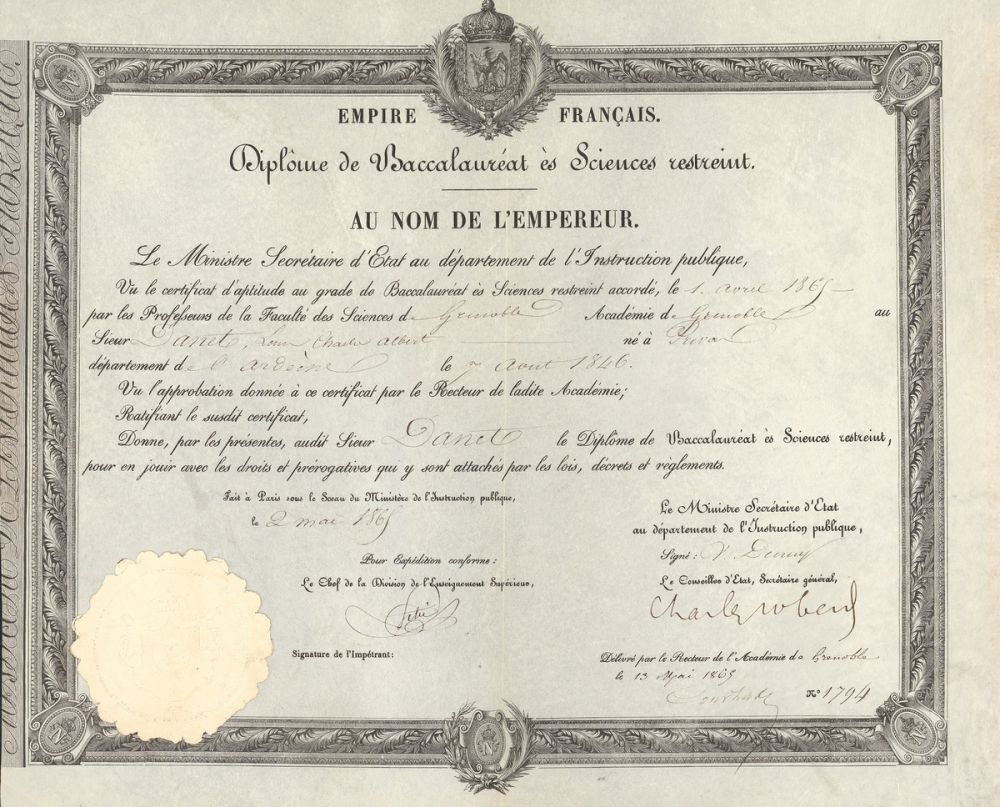 EMPIRE FRANÇAIS.
Diplôme de Baccalauréat ès Sciences restreint.
AU NOM DE L'EMPEREUR.
Le Ministre Secrétaire d'Etat au département de l'Instruction publique,
Vu le certificat d'aptitude au grade de Baccalauréat ès Sciences restreint accordé, le 1. avril 1865
par les Professeurs de la Faculté des Sciences de Grenoble Académie de Grenoble au
Sieur Danet, Louis Charles Albert né à Privas
département de l'ardèche le 7 Aout 1846.
Vu l'approbation donnée à ce certificat par le Recteur de ladite Académie;
Ratifiant le susdit certificat,
Donne, par les présentes, audit Sieur Danet le Diplôme de Baccalauréat ès Sciences restreint,
pour en jouir avec les droits et prérogatives qui y sont attachés par les lois, décrets et règlements.
Fait à Paris sous le Sceau du Ministère de l'Instruction publique,
le 2 mai 1865
Pour Expédition conforme:
Le Chef de la Division de l'Enseignement Supérieur,
Signature de l'Impétrant:
Le Ministre Secrétaire d'Etat
au département de l'Instruction publique,
Signé: V. Duruy
Le Conseiller d'Etat, Secrétaire général,
Charles Robert
Délivré par le Recteur de l'Académie de Grenoble
le 13 Mai 1865
N° 1794